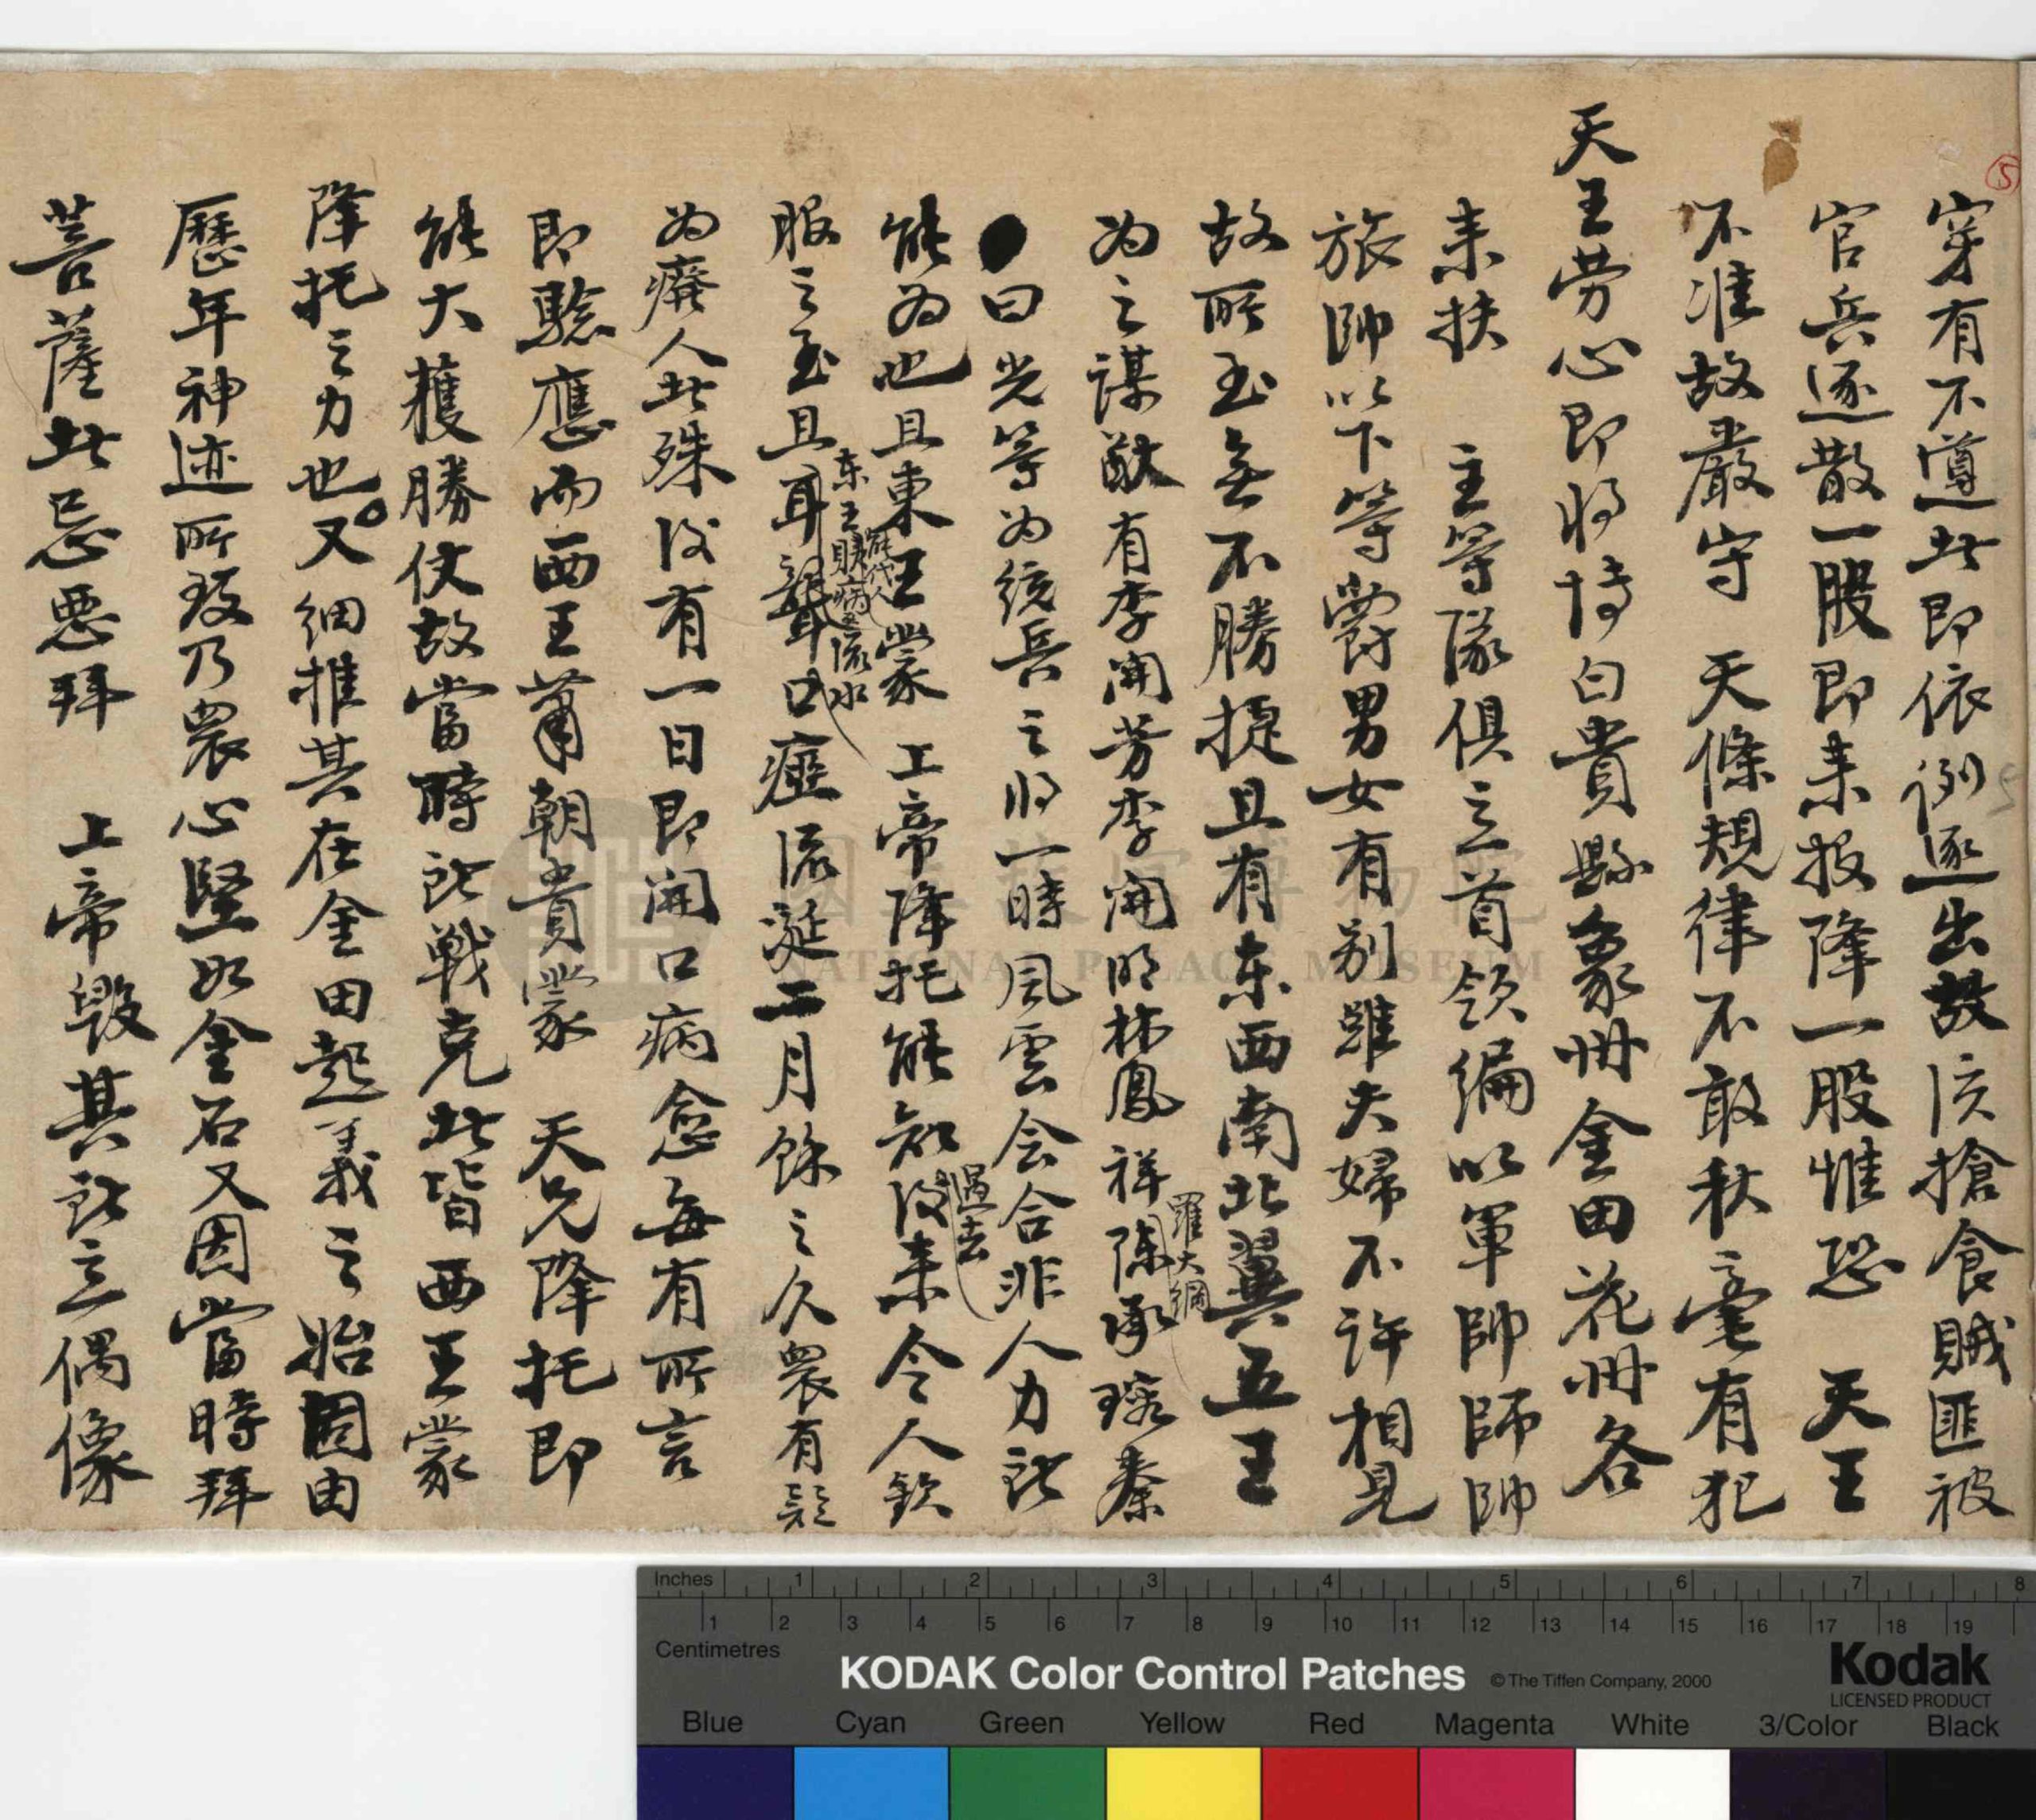 穿有不遵此即依例逐出故该搶食賊匪被
官兵逐散一股即来投降一股惟恐 天王
不准故嚴守 天條規律不敢秋毫有犯
天王劳心即将博白貴縣象州金田花州各
来扶 主等隊俱立首领编以軍帥師帥
旅帥以下等爵男女有别雖夫婦不许相見
故所至無不勝捷且有东西南北翼五王
为之谋猷有李開芳李開明林鳳祥陳承瑢秦
羅大綱
曰光等为统兵之将一時風雲会合非人力所
能为也且東王蒙 上帝降托能知後来令人欽
過去
能代人
服之至且耳聾口瘂流涎二月餘之久衆有疑
东王賎病至流水
为癈人此殊後有一日即開口病愈每有所言
即驗應而西王蕭朝貴蒙 天兄降托即
能大獲勝仗故當時所戰克此皆西王蒙
降托之力也又细推其在金田起義之始固由
歷年神迹所致乃衆心堅如金石又因當時拜
菩薩此忌悪拜 上帝毁其所立偶像
國立故宮博物院
NATIONAL PALACE MUSEUM
5
Inches 1 2 3 4 5 6 7 8
1 2 3 4 5 6 7 8 9 10 11 12 13 14 15 16 17 18 19
Centimetres
KODAK Color Control Patches © The Tiffen Company, 2000
Kodak
LICENSED PRODUCT
Blue Cyan Green Yellow Red Magenta White 3/Color Black